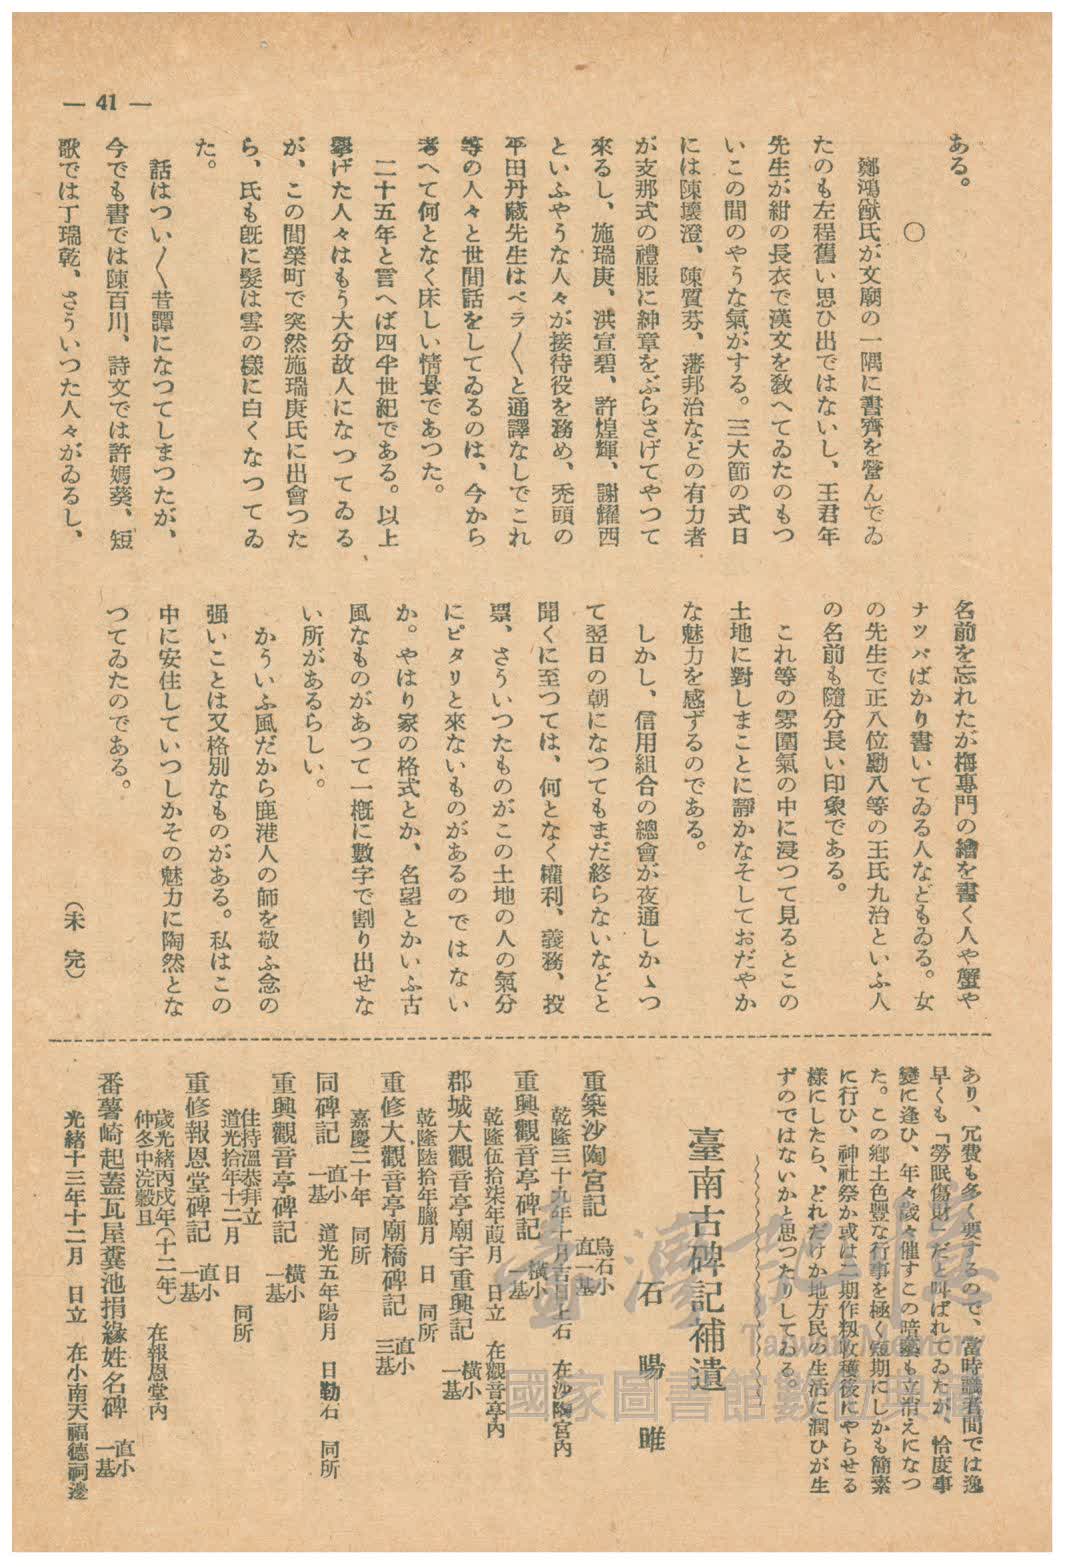 — 41 —
ある。
〇
鄭鴻猷氏が文廟の一隅に書齊を營んでゐ
たのも左程舊い思ひ出ではないし、王君年
先生が紺の長衣で漢文を敎へてゐたのもつ
いこの間のやうな氣がする。三大節の式日
には陳壞澄、陳質芬、潘邦治などの有力者
が支那式の禮服に紳章をぶらさげてやつて
來るし、施瑞庚、洪宣碧、許煌輝、謝耀西
といふやうな人々が接待役を務め、禿頭の
平田丹藏先生はペラ〱と通譯なしでこれ
等の人々と世間話をしてゐるのは、今から
考へて何となく床しい情景であつた。
二十五年と言へば四半世紀である。以上
擧げた人々はもう大分故人になつてゐる
が、この間榮町で突然施瑞庚氏に出會つた
ら、氏も旣に髮は雪の樣に白くなつてゐ
た。
話はつい〱昔譚になつてしまつたが、
今でも書では陳百川、詩文では許媽葵、短
歌では丁瑞乾、さういつた人々がゐるし、
名前を忘れたが梅專門の繪を書く人や蟹や
ナッパばかり書いてゐる人などもゐる。女
の先生で正八位勳八等の王氏九治といふ人
の名前も隨分長い印象である。
これ等の雰圍氣の中に浸つて見るとこの
土地に對しまことに靜かなそしておだやか
な魅力を感ずるのである。
しかし、信用組合の總會が夜通しかゝつ
て翌日の朝になつてもまだ終らないなどと
聞くに至つては、何となく權利、義務、投
票、さういつたものがこの土地の人の氣分
にピタリと來ないものがあるのではない
か。やはり家の格式とか、名望とかいふ古
風なものがあつて一槪に數字で割り出せな
い所があるらしい。
かういふ風だから鹿港人の師を敬ふ念の
强いことは又格別なものがある。私はこの
中に安住していつしかその魅力に陶然とな
つてゐたのである。
（未完）
あり、冗費も多く要するので、當時識者間では逸
早くも「勞眠傷財」だと叫ばれてゐたが、恰度事
變に逢ひ、年々歲々催すこの暗躍も立消えになつ
た。この鄉土色豐な行事を極く短期にしかも簡素
に行ひ、神社祭か或は二期作籾收穫後にやらせる
樣にしたら、どれだけか地方民の生活に潤ひが生
ずのではないかと思つたりしてゐる。
臺南古碑記補遺
石暘睢
重築沙陶宮記　烏石小直一基
乾隆三十九年十月吉日上石　在沙陶宮內
重興觀音亭碑記　橫小一基
乾隆伍拾柒年葭月　日立　在觀音亭內
郡城大觀音亭廟宇重興記　橫小一基
乾隆陸拾年臘月　日　同所
重修大觀音亭廟橋碑記　直小三基
嘉慶二十年　同所
同碑記　直小一基　道光五年陽月　日勒石　同所
重興觀音亭碑記　橫小一基
住持溫恭拜立
道光拾年十二月　日　同所
重修報恩堂碑記　直小一基
歲光緒丙戌年（十二年）
仲冬中浣穀旦　在報恩堂內
番薯崎起蓋瓦屋糞池捐緣姓名碑　直小一基
光緒十三年十二月　日立　在小南天福德祠邊
臺灣記憶
Taiwan Memory
國家圖書館數位典藏